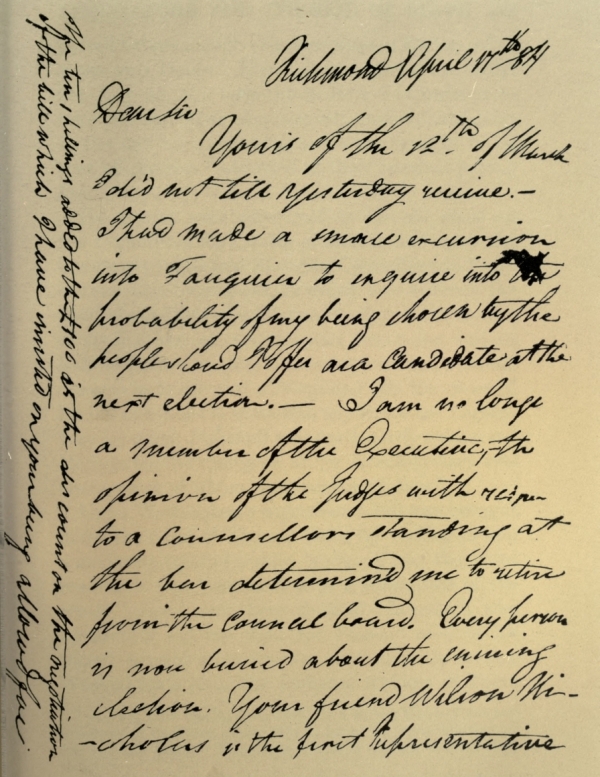 Richmond April 17th 84
Dear sir
Yours of the 12th of March
I did not till yesterday receive.—
I had made a small excursion
into Fauquier to enquire into the
probability of my being chosen by the
people shoud I offer as a candidate at the
next election.— I am no longe
a member of the Executive, the
opinion of the Judges with respec
to a counsellors standing at
the bar determind me to retire
from the council board. Every person
is now busied about the ensuing
election. Your friend Wilson Ni-
-cholas is the first representative
The ten shillings added to the £100 is the discount on the
of the bill which I have insisted on your being allowed for.